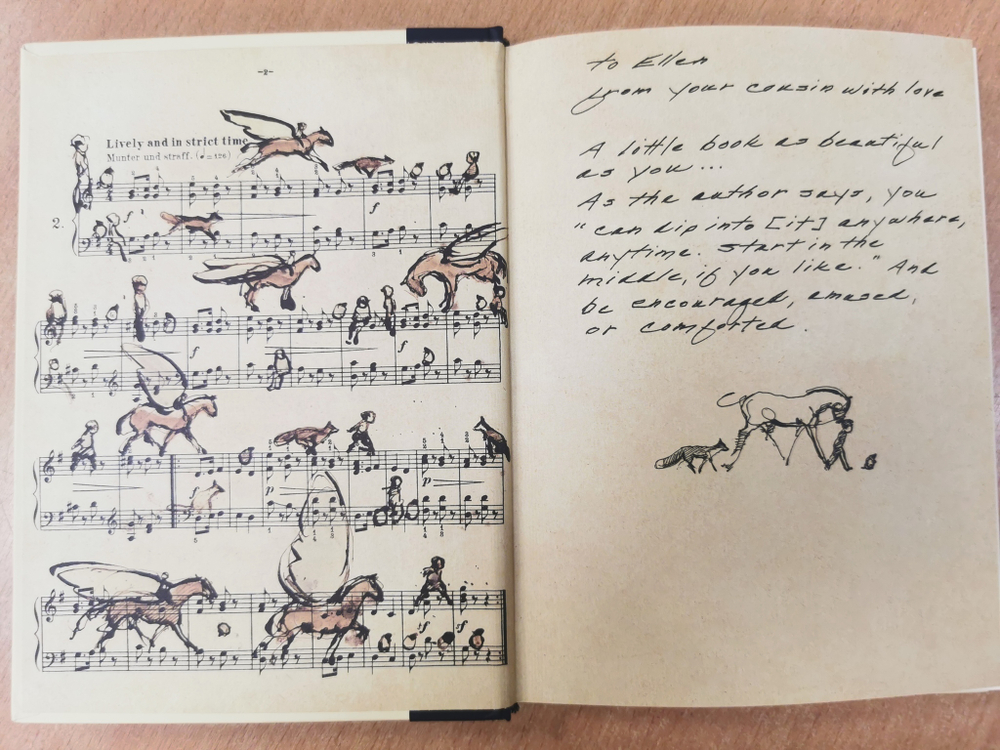 -2-
Lively and in strict time
Munter und straff. (♩=126)
2.
f
f
f
f
p
p
sf
sf
to Ellen
from your cousin with love
A little book as beautiful
as you...
As the author says, you
"can dip into [it] anywhere,
anytime. Start in the
middle, if you like." And
be encouraged, amused,
or comforted.